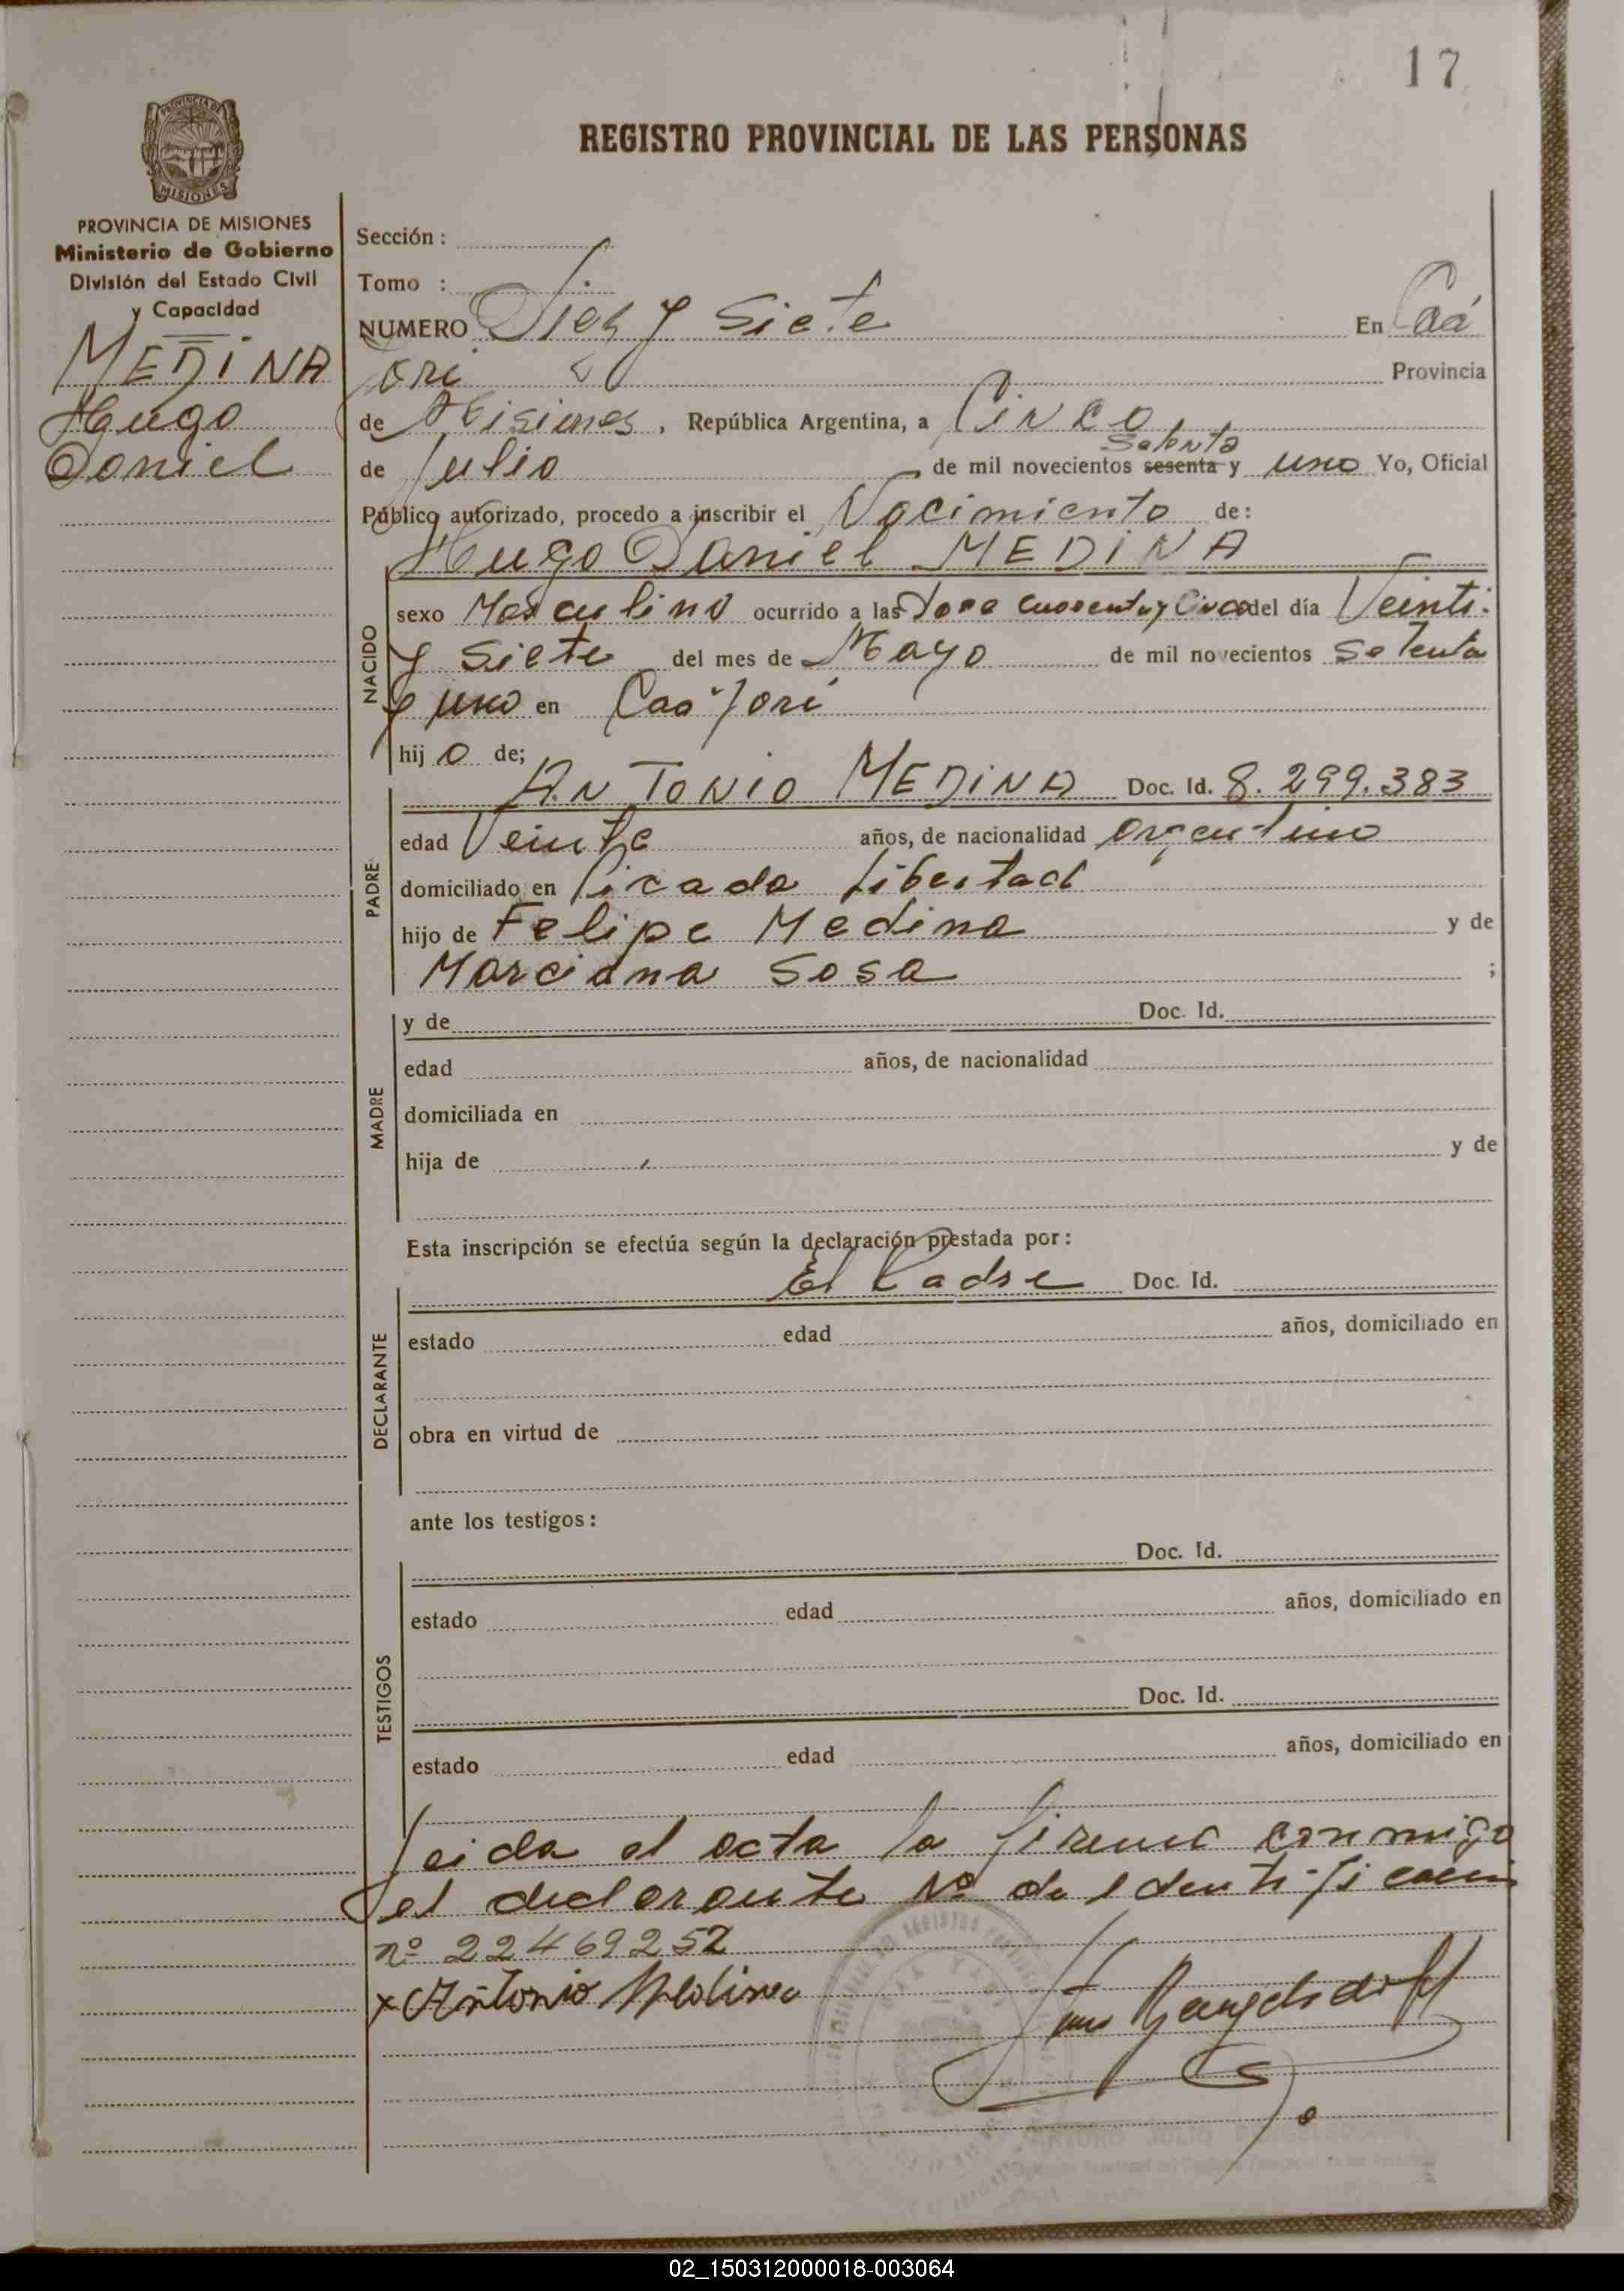 17
REGISTRO PROVINCIAL DE LAS PERSONAS
PROVINCIA DE MISIONES
MISIONES
PROVINCIA DE MISIONES
Ministerio de Gobierno
División del Estado Civil
y Capacidad
MEDINA
Hugo
Daniel
Sección :
Tomo :
NUMERO Diez y Siete En Caá
Yarí Provincia
de Misiones, República Argentina, a Cinco
setenta
de Julio de mil novecientos sesenta y uno Yo, Oficial
Público autorizado, procedo a inscribir el Nacimiento de:
Hugo Daniel MEDINA
NACIDO
sexo Masculino ocurrido a las Doce cuarenta y Cinco del día Veinti
y Siete del mes de Mayo de mil novecientos Setenta
y uno en Caá Yarí
hijo de;
PADRE
ANTONIO MEDINA Doc. Id. 8.299.383
edad Veinte años, de nacionalidad argentino
domiciliado en Picada Libertad
hijo de Felipe Medina y de
Marciana Sosa ;
MADRE
y de Doc. Id.
edad años, de nacionalidad
domiciliada en
hija de y de
Esta inscripción se efectúa según la declaración prestada por:
DECLARANTE
El Padre Doc. Id.
estado edad años, domiciliado en
obra en virtud de
ante los testigos:
TESTIGOS
Doc. Id.
estado edad años, domiciliado en
Doc. Id.
estado edad años, domiciliado en
Leida el acta la firma conmigo
el declarante Nº de identificación
nº 22469252
x Antonio Medina
ARTURO JULIO
02_150312000018-003064